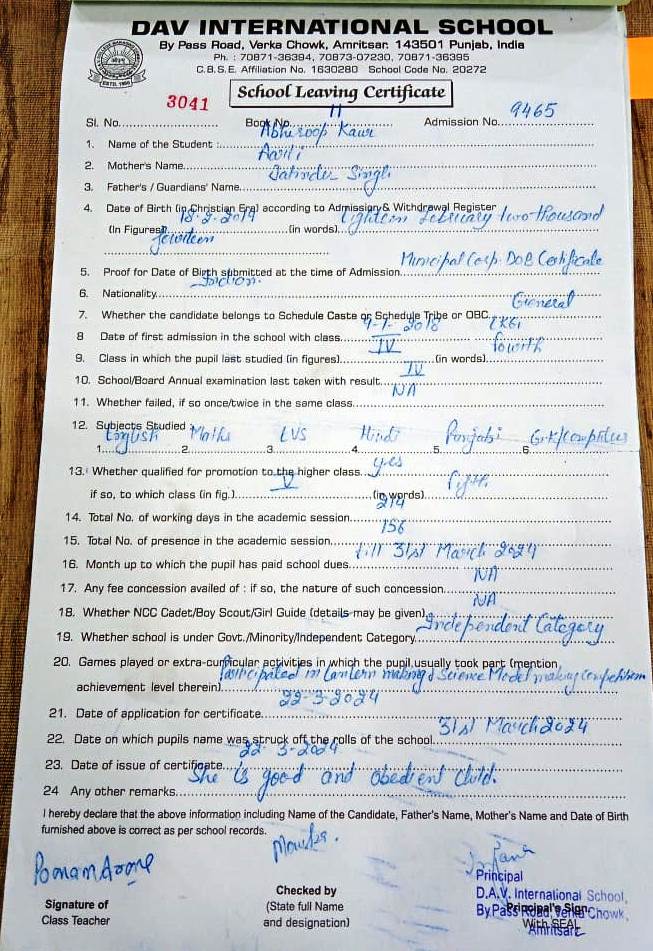 DAV INTERNATIONAL SCHOOL
By Pass Road, Verka Chowk, Amritsar. 143501 Punjab, India
Ph. : 70871-36394, 70873-07230, 70871-36395
C.B.S.E. Affiliation No. 1630280 School Code No. 20272
School Leaving Certificate
Sl. No. 3041 Book No. 11 Admission No. 9465
1. Name of the Student : Abhiroop Kaur
2. Mother's Name Aarti
3. Father's / Guardians' Name Jatinder Singh
4. Date of Birth (in Christian Era) according to Admission & Withdrawal Register
(In Figures) 18-2-2014 (in words) Eighteen February two thousand
fourteen
5. Proof for Date of Birth submitted at the time of Admission Municipal Corp. DoB Certificate
6. Nationality Indian.
7. Whether the candidate belongs to Schedule Caste or Schedule Tribe or OBC General
8 Date of first admission in the school with class 4-1-2018 LKG
9. Class in which the pupil last studied (in figures) IV (in words) fourth
10. School/Board Annual examination last taken with result IV
11. Whether failed, if so once/twice in the same class NA
12. Subjects Studied :
1. English 2. Maths 3. EVS 4. Hindi 5. Punjabi 6. G.K/Computer
13. Whether qualified for promotion to the higher class yes
if so, to which class (in fig.) V (in words) fifth
14. Total No. of working days in the academic session 214
15. Total No. of presence in the academic session 156
16. Month up to which the pupil has paid school dues till 31st March 2024
17. Any fee concession availed of : if so, the nature of such concession NA
18. Whether NCC Cadet/Boy Scout/Girl Guide (details may be given) NA
19. Whether school is under Govt./Minority/Independent Category Independent Category
20. Games played or extra-curricular activities in which the pupil usually took part (mention
achievement level therein) Participated in Lantern making & Science Model making Competition
21. Date of application for certificate 22-3-2024
22. Date on which pupils name was struck off the rolls of the school 31st March 2024
23. Date of issue of certificate 22-3-2024
24 Any other remarks She is good and obedient child.
I hereby declare that the above information including Name of the Candidate, Father's Name, Mother's Name and Date of Birth
furnished above is correct as per school records.
Poonam
Signature of
Class Teacher
Checked by
(State full Name
and designation)
Principal
D.A.V. International School,
By Pass Road, Verka Chowk,
Amritsar.
Principal's Sign
With SEAL